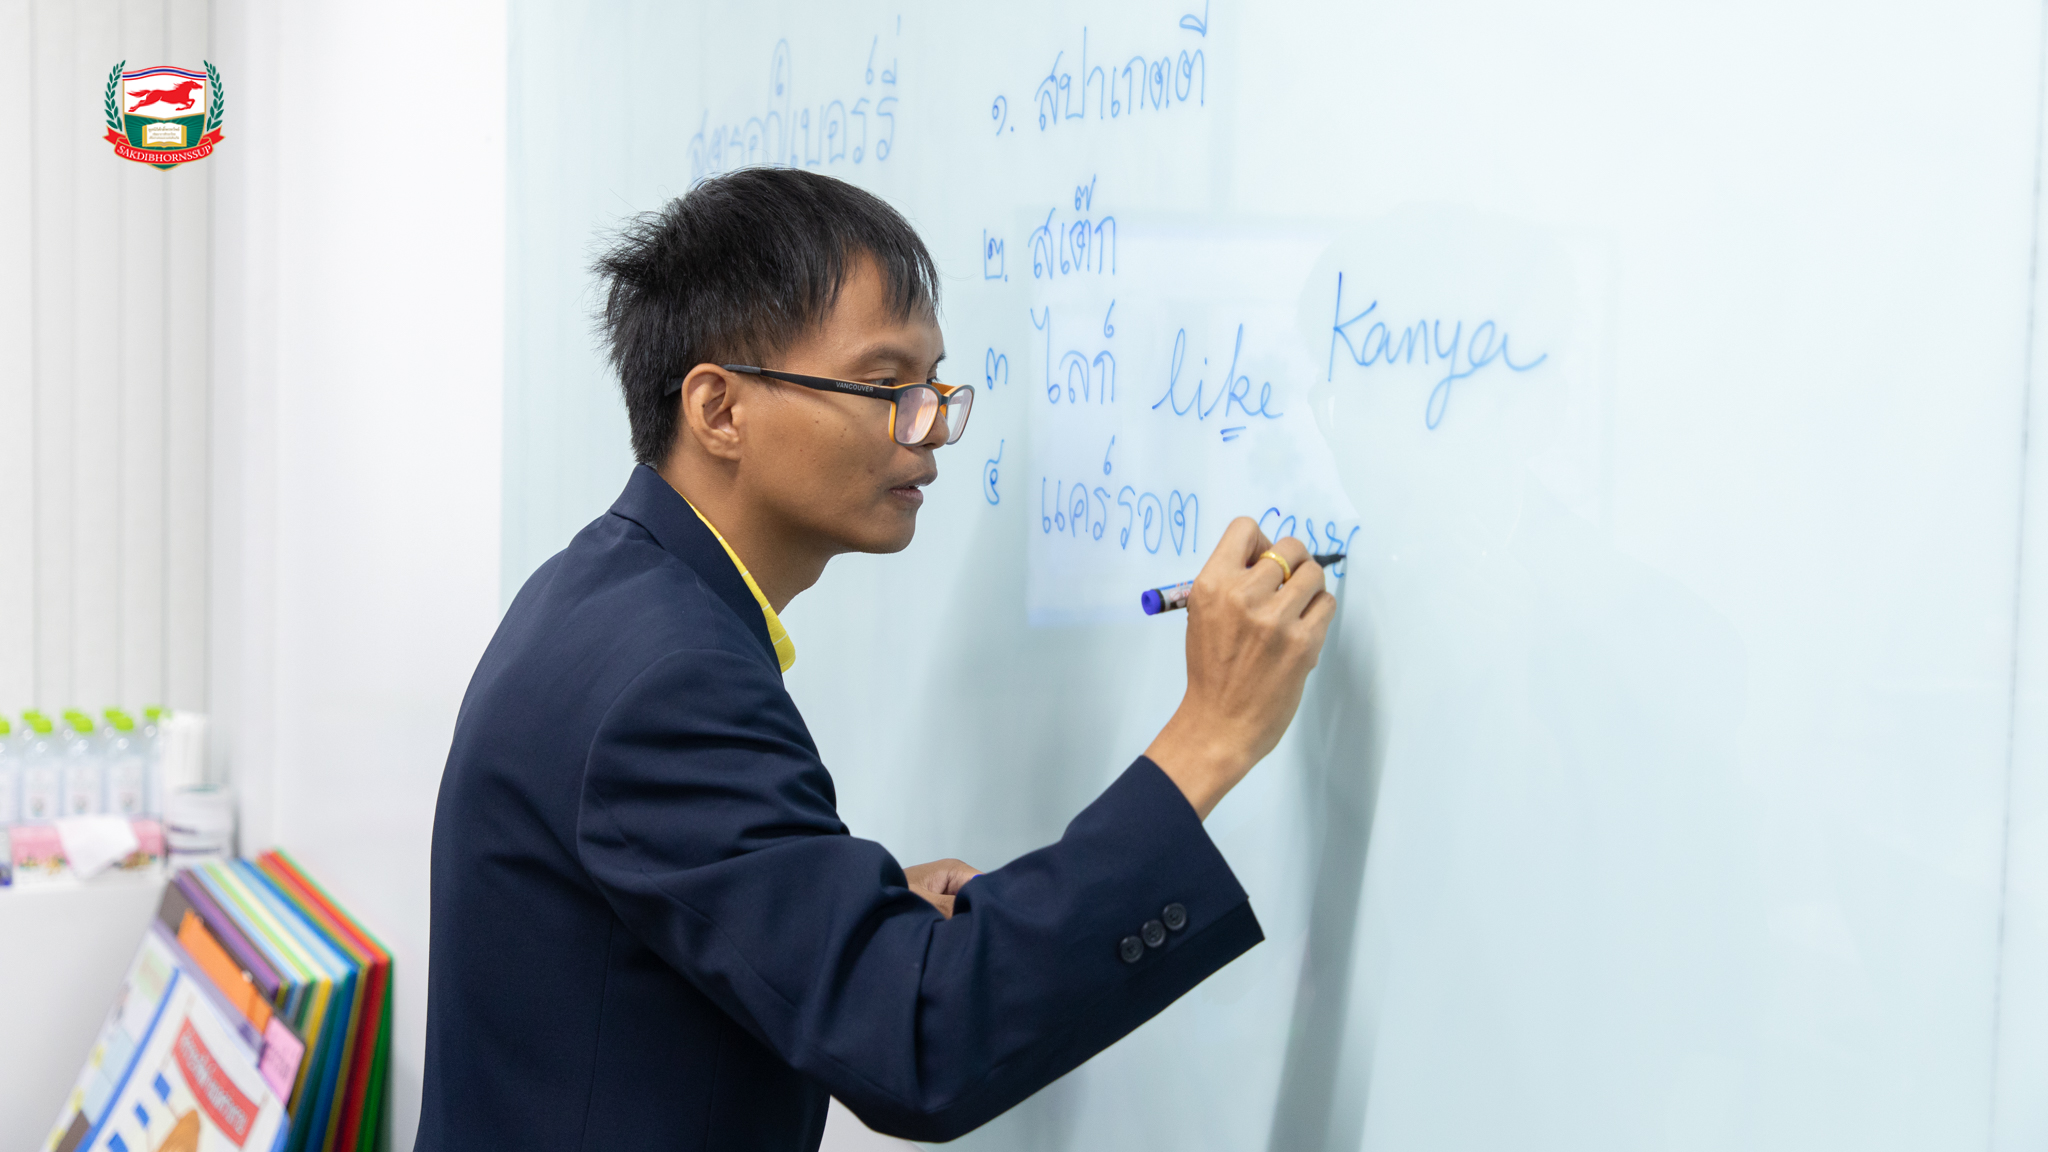 SAKDIBHORNSSUP
สตรอว์เบอร์รี่
๑. สปาเกตตี
๒. สเต๊ก
๓ ไลก์ like Kanya
๔ แคร์รอต carr
VANCOUVER